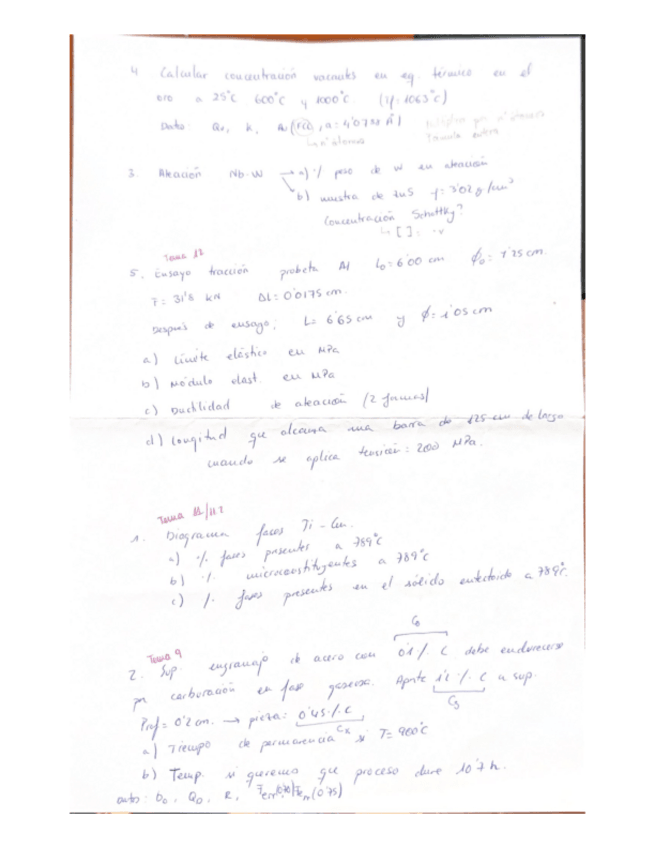 4 Calcular concentración vacantes en eq. térmico en el
oro a 25°C 600°C y 1000°C. (Tf=1063°C)
Datos: Qv, k, Au (FCC, a=4'0788 Å)
3. Aleación Nb-W → a) % peso de W en aleación
b) muestra de ZnS ρ=3'02 g/cm³
Concentración Schottky?
Tema 12
5. Ensayo tracción probeta Al L₀=6'00 cm ϕ₀=1'25 cm.
F=31'8 kN ΔL=0'0175 cm.
Después de ensayo; L=6'65 cm y ϕ=1'05 cm
a) Límite elástico en MPa
b) Módulo elast. en MPa
c) Ductilidad de aleación (2 formas)
d) Longitud que alcanza una barra de 125 cm de largo
cuando se aplica tensión: 200 MPa.
Tema 11/12
1. Diagrama fases Ti-Cu.
a) % fases presentes a 789°C
b) % microconstituyentes a 789°C
c) % fases presentes en el sólido eutectoide a 789°C.
C₀
Tema 9
2. Sup. engranaje de acero con 0'1 % C debe endurecerse
por carburación en fase gaseosa. Aporte 1'2 % C a sup.
Cs
Prof=0'2 cm. → pieza: 0'45 % C
Cx
a) Tiempo de permanencia si T=900°C
b) Temp. si queremos que proceso dure 10'7 h.
D₀, Q₀, R, (0'75)